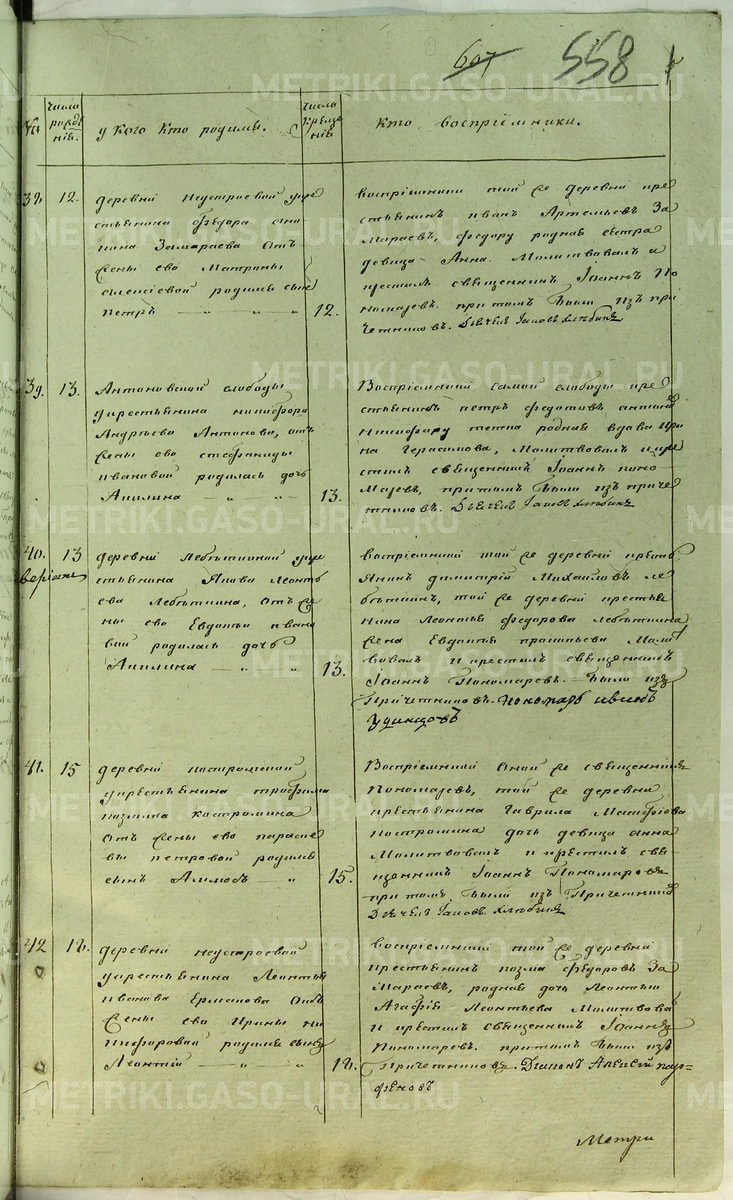 607 558
№ числа рожденія. у кого кто родился. числа крещенія кто воспріемники.
38. 12. деревни Неустроевой у кре
стьянина Федора Ана
Замараева отъ
жены ево Матроны
Алексіевой родился сынъ
Петръ 12.
воспріемники той же деревни кре
стьянинъ иванъ Артемьевъ За
мараевъ, Федору родная сестра
девица Анна. Молитвовалъ и
крестилъ священникъ Іоаннъ По
номаревъ. притомъ были изъ при
четниковъ. Дьячекъ Іаковъ Хлѣбинъ
39. 13. Антоновской слободы
у крестьянина никифора
Андрѣева Антонова, отъ
жены ево стефаниды
ивановой родилась дочь
Акилина 13.
Воспріемники самой слободы кре
стьянинъ петръ федотовъ антоновъ
никифору тетка родная вдова Ири
на Герасимова, Молитвовалъ и кре
стилъ священникъ Іоаннъ поно
маревъ, притомъ были изъ приче
тниковъ. Дьячекъ Іаковъ Хлѣбинъ
40. 13 деревни Лебяткиной у кре
стьянина Якова Леонть
ева Лебяткина, отъ же
ны ево Евдокіи ивано
вой родилась дочь
Акилина 13.
воспріемники той же деревни кресть
янинъ димитрій Михайловъ ле
бяткинъ, той же деревни крестья
нина Леонтья федорова лебяткина
жена Евдокія прокопьева Молит
вовалъ и крестилъ священникъ
Іоаннъ Пономаревъ. были изъ
Причетниковъ. пономарь
Удинцовъ
41. 15 деревни костромской
у крестьянина трофима
козмина костромина
отъ жены ево параске
вы петровой родился
сынъ 15.
Воспріемники оной же священникъ
Пономаревъ, той же деревни
крестьянина Гаврила
костромина дочь девица анна
Молитвовалъ и крестилъ свя
щенникъ Іоаннъ Пономаревъ
притомъ были изъ Причетниковъ
Дьячекъ Іаковъ Хлѣбинъ
42 18. деревни неустроевой
у крестьянина Леонтья
иванова Ермакова отъ
жены ево Ирины ни
кифоровой родился сынъ
Леонтій 18.
воспріемники той же деревни
крестьянинъ козма Федоровъ За
мараевъ, родная дочь Леонтью
Агафія Леонтьева Молитвова
и крестилъ священникъ Іоаннъ
Пономаревъ. притомъ были изъ
Причетниковъ. Діаконъ Алексій пар-
феновъ
Метри
METRIKI.GASO-URAL.RU